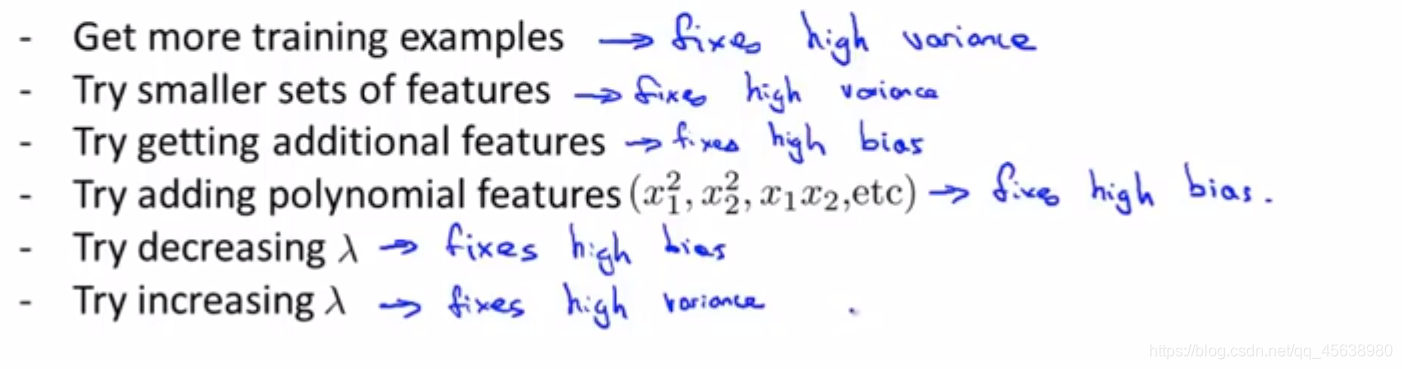 - Get more training examples → fixes high variance
- Try smaller sets of features → fixes high variance
- Try getting additional features → fixes high bias
- Try adding polynomial features (x₁², x₂², x₁x₂,etc) → fixes high bias.
- Try decreasing λ → fixes high bias
- Try increasing λ → fixes high variance
https://blog.csdn.net/qq_45638980